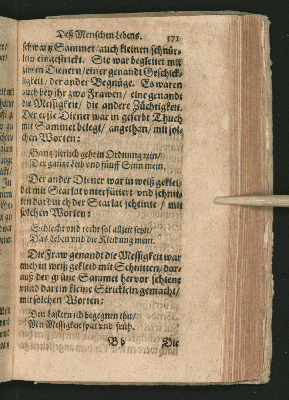 Deß Menschen Lebens. 371
schwartz Sammet/ auch kleinen schnür-
lein eingestrickt. Sie war begleitet mit
zweien Dienern/ einer genandt Geschick-
ligkeit/ der ander Begnüge. Es waren
auch bey ihr zwo Frawen/ eine genandt
die Messigkeit/ die andere Züchtigkeit.
Der erste Diener war in geferbt Thuch
mit Sammet belegt/ angethan/ mit sol-
chen Worten:
Gantz zierlich geht in Ordnung rein/
Der gantze Leib und fünff Sinn mein.
Der ander Diener war in weiß geklei-
det mit Scarlat unterfüttert und schnit-
ten dardurch der Scarlat scheinte/ mit
solchen Worten:
Schlecht und recht sol allzeit seyn/
Das Leben und die Kleidung mein.
Die Fraw genandt die Messigkeit war
auch in weiß gekleid mit Schnitten/ dar-
auß der grüne Sammet hervor schiene
und darin kleine Stricklein gemacht/
mit solchen Worten:
Den Lastern ich begegnen thu/
Mit Messigkeit spat und früh.
B b Die